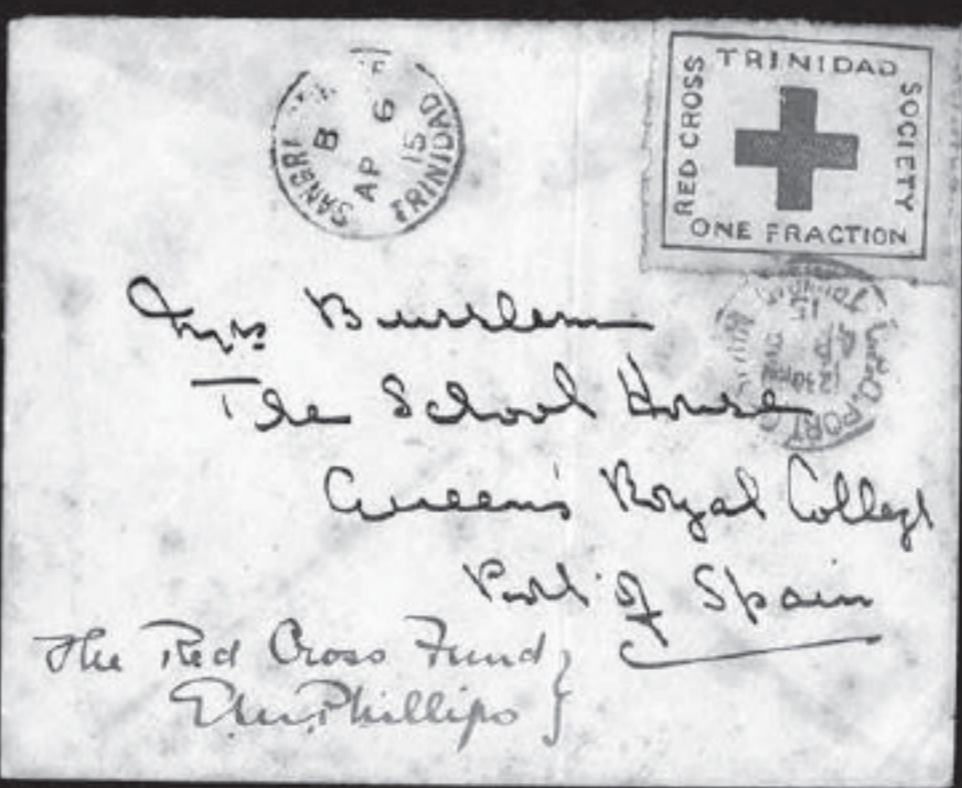 SANGRE
B
AP 6
15
TRINIDAD
TRINIDAD
RED CROSS
SOCIETY
ONE FRACTION
G.P.O. PORT
12 30
15
Mrs Burslem
The School House
Queen's Royal College
Port of Spain
The Red Cross Fund
Phillips